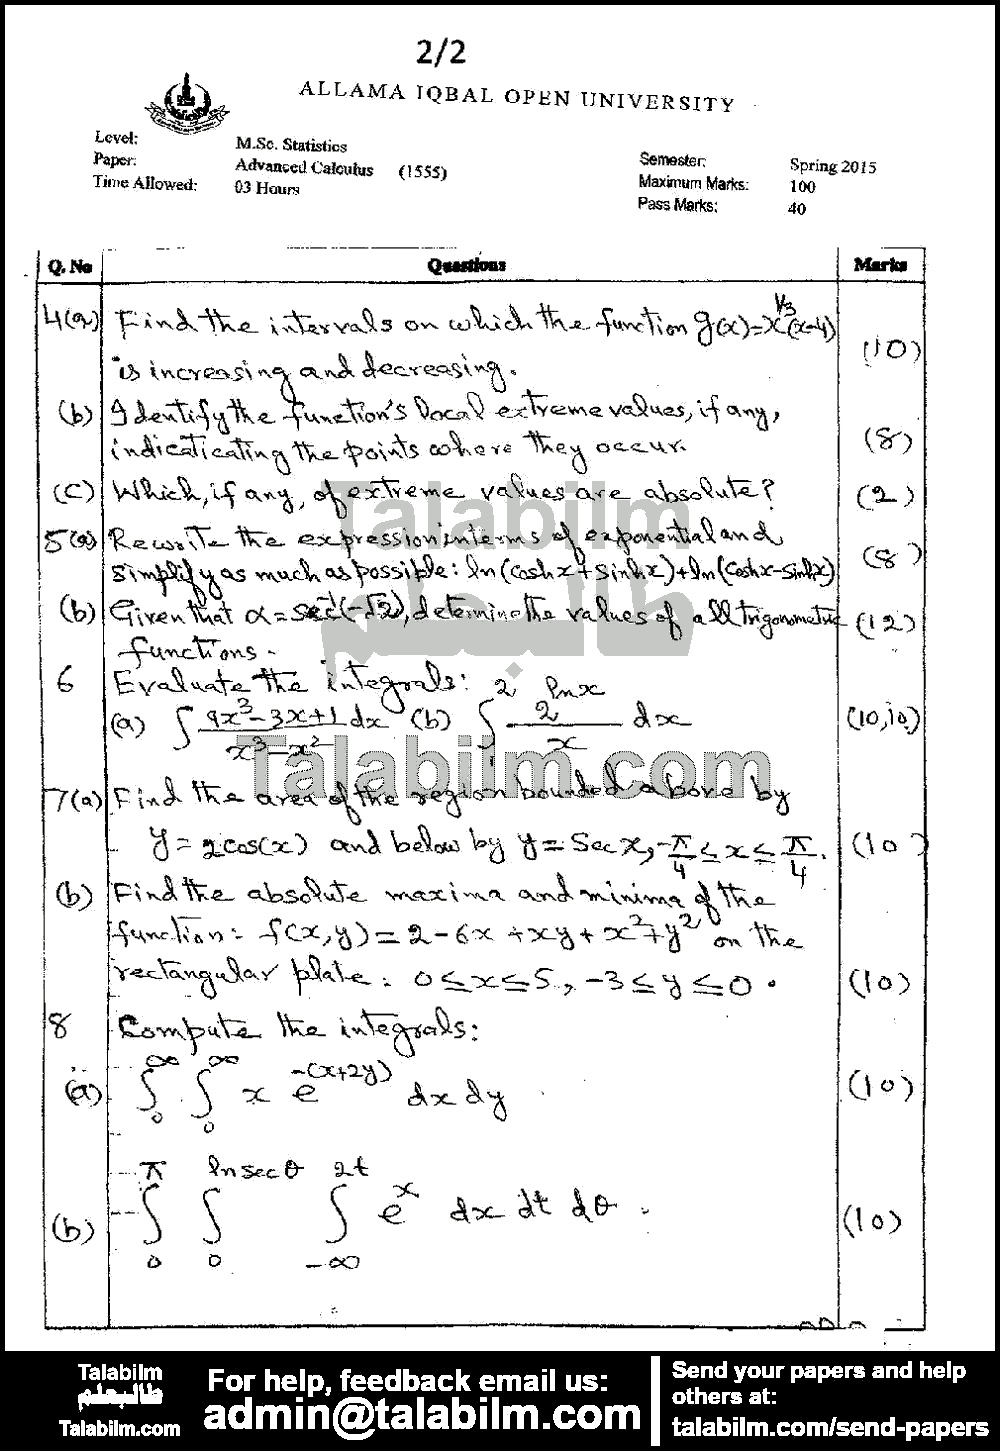 2/2
ALLAMA IQBAL OPEN UNIVERSITY
Level: M.Sc. Statistics
Paper: Advanced Calculus (1555)
Time Allowed: 03 Hours
Semester: Spring 2015
Maximum Marks: 100
Pass Marks: 40
Q. No Questions Marks
4(a) Find the intervals on which the function g(x)=x^1/3(x-4) (10)
is increasing and decreasing.
(b) Identify the function's local extreme values, if any,
indicaticating the points where they occur. (8)
(c) Which, if any, of extreme values are absolute? (2)
5(a) Rewrite the expression interms of exponential and
simplify as much as possible: ln(coshx+sinhx)+ln(coshx-sinhx) (8)
(b) Given that α=sec^-1(-√2), determine the values of all trigonometric (12)
functions.
6 Evaluate the integrals:
(a) ∫ (9x^3-3x+1)/(x^3-x^2) dx (b) ∫_1^2 2^(ln x)/x dx (10,10)
7(a) Find the area of the region bounded above by
y=2cos(x) and below by y=secx, -π/4 ≤ x ≤ π/4. (10)
(b) Find the absolute maxima and minima of the
function: f(x,y)=2-6x+xy+x^2+y^2 on the
rectangular plate: 0≤x≤5, -3≤y≤0. (10)
8 Compute the integrals:
(a) ∫_0^∞ ∫_0^∞ x e^-(x+2y) dx dy (10)
(b) ∫_0^π ∫_0^(ln sec θ) ∫_-∞^(2t) e^x dx dt dθ. (10)
Talabilm
طالبعلم
Talabilm.com
Talabilm
طالبعلم
Talabilm.com
For help, feedback email us:
admin@talabilm.com
Send your papers and help
others at:
talabilm.com/send-papers